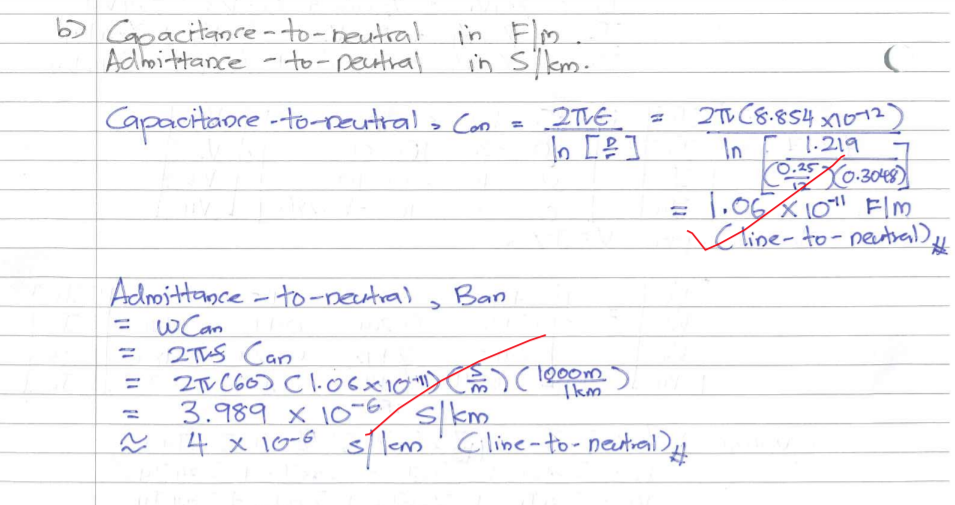 b) Capacitance-to-neutral in F/m.
Admittance-to-neutral in S/km. (
Capacitance-to-neutral, Can = 2πε / ln [D/r] = 2π(8.854 x10-12) / ln [1.219 / (0.25/12)(0.3048)]
= 1.06 x 10-11 F/m
(line-to-neutral)#
Admittance-to-neutral, Ban
= ωCan
= 2πf Can
= 2π(60) (1.06x10-11) (S/m) (1000m/1km)
= 3.989 x 10-6 S/km
≈ 4 x 10-6 S/km (line-to-neutral)#